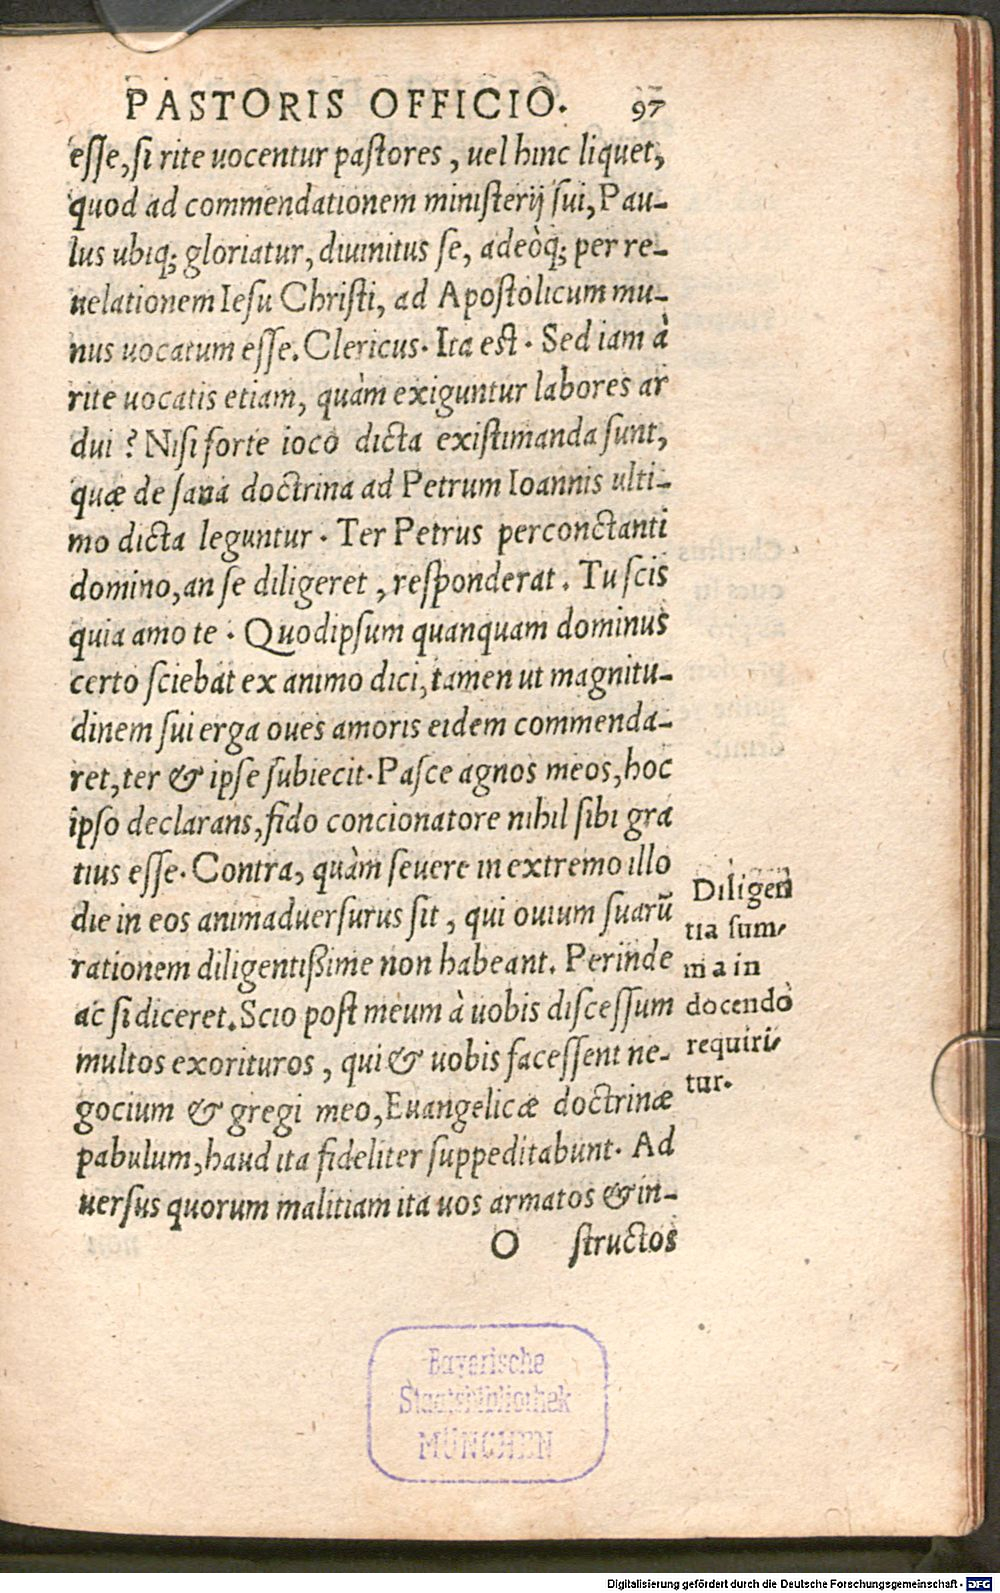 PASTORIS OFFICIO. 97
esse, si rite uocentur pastores, uel hinc liquet,
quod ad commendationem ministerij sui, Pau-
lus ubiq; gloriatur, diuinitus se, adeòq; per re-
uelationem Iesu Christi, ad Apostolicum mu-
nus uocatum esse. Clericus. Ita est. Sed iam à
rite uocatis etiam, quàm exiguntur labores ar
dui? Nisi forte ioco dicta existimanda sunt,
quæ de sana doctrina ad Petrum Ioannis ulti-
mo dicta leguntur. Ter Petrus perconctanti
domino, an se diligeret, responderat. Tu scis
quia amo te. Quodipsum quanquam dominus
certo sciebat ex animo dici, tamen ut magnitu-
dinem sui erga oues amoris eidem commenda-
ret, ter & ipse subiecit. Pasce agnos meos, hoc
ipso declarans, fido concionatore nihil sibi gra
tius esse. Contra, quàm seuere in extremo illo
die in eos animaduersurus sit, qui ouium suarū
rationem diligentißime non habeant. Perinde
ac si diceret. Scio post meum à uobis discessum
multos exorituros, qui & uobis facessent ne-
gocium & gregi meo, Euangelicæ doctrinæ
pabulum, haud ita fideliter suppeditabunt. Ad
uersus quorum malitiam ita uos armatos & in-
O structos
Diligen
tia sum-
ma in
docendo
requiri-
tur.
Bayerische
Staatsbibliothek
MÜNCHEN
Digitalisierung gefördert durch die Deutsche Forschungsgemeinschaft - DFG